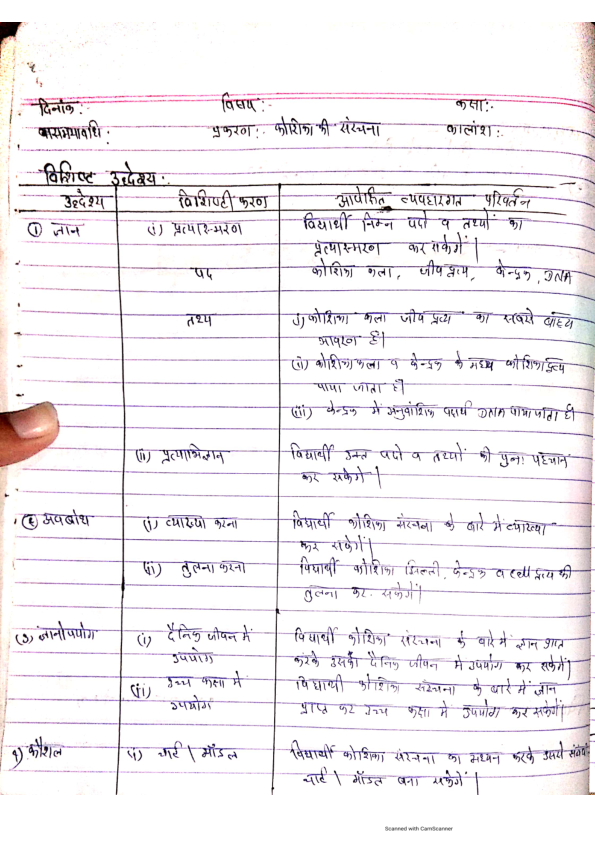 दिनांक :- विषय :- कक्षा :-
प्रकरण :- कोशिका की संरचना कालांश :-
विशिष्ट उद्देश्य :-
उद्देश्य विशिष्टीकरण व्यवहारगत परिवर्तन
① ज्ञान (i) प्रत्यास्मरण विद्यार्थी निम्न पदो व तथ्यों का
प्रत्यास्मरण कर सकेगें |
पद कोशिका कला, जीव द्रव्य, केन्द्रक, DNA
तथ्य i) कोशिका कला जीव द्रव्य का सबसे बाह्य
आवरण है |
(ii) कोशिका कला व केन्द्रक के मध्य कोशिका द्रव्य
पाया जाता है |
(iii) केन्द्रक में अनुवांशिक पदार्थ DNA पाया जाता है |
(ii) प्रत्याभिज्ञान विद्यार्थी उक्त पदो व तथ्यों की पुनः पहचान
कर सकेगे |
अवबोध (i) व्याख्या करना विद्यार्थी कोशिका संरचना के बारे में व्याख्या
कर सकेगें |
(ii) तुलना करना विद्यार्थी कोशिका झिल्ली, केन्द्रक व cell द्रव्य की
तुलना कर सकेगें |
(3) ज्ञानोपयोग (i) दैनिक जीवन में विद्यार्थी कोशिका संरचना के बारे में ज्ञान प्राप्त
उपयोग करके उसकी दैनिक जीवन में उपयोग कर सकेगें |
(ii) उच्च कक्षा में विद्यार्थी कोशिका संरचना के बारे में ज्ञान
उपयोग प्राप्त कर उच्च कक्षा में उपयोग कर सकेगें |
4) कौशल (i) चार्ट | मॉडल विद्यार्थी कोशिका संरचना का करके उससे
चार्ट | मॉडल बना सकेगें |
Scanned with CamScanner